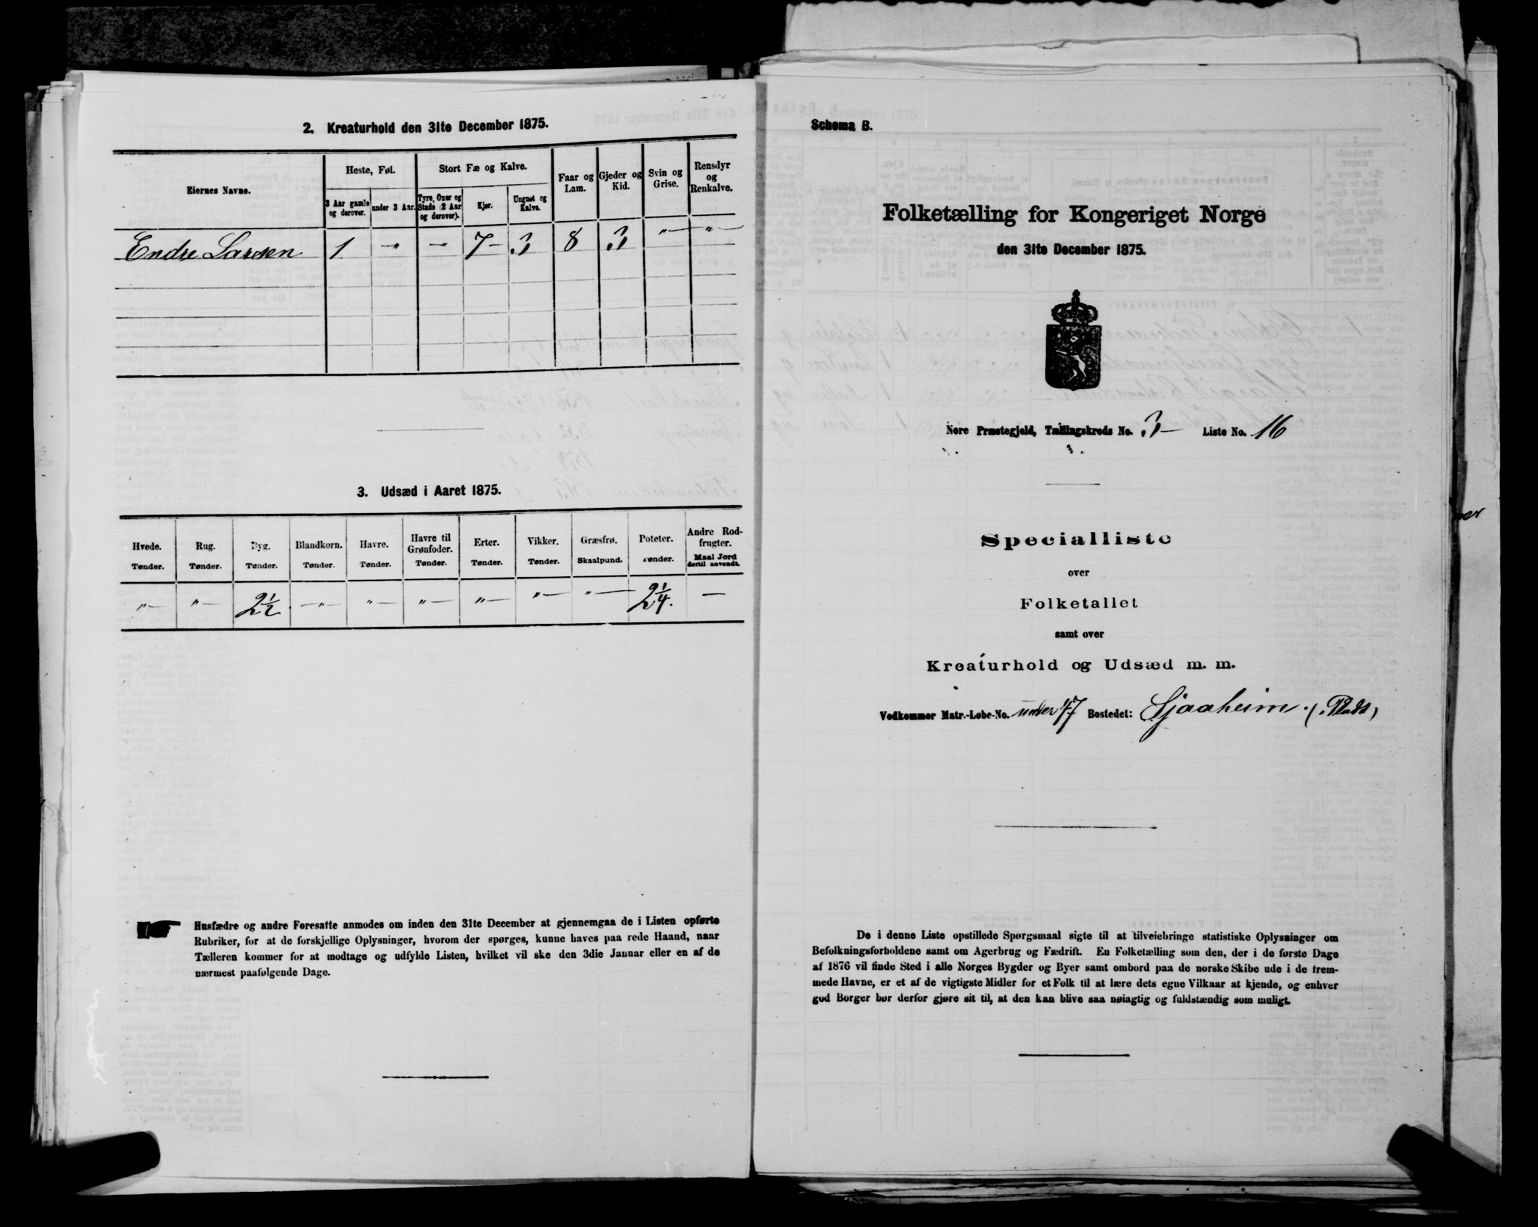 2. Kreaturhold den 31te December 1875.
Eiernes Navne.
Heste, Føl.
Stort Fæ og Kalve.
Faar og Lam.
Gjeder og Kid.
Svin og Grise.
Rensdyr og Renkalve.
3 Aar gamle og derover.
under 3 Aar.
Tyre, Oxer og Stude (2 Aar og derover).
Kjør.
Ungnød og Kalve.
Endre Larsen 1 " — 7 — 3 8 3 " — " —
3. Udsæd i Aaret 1875.
Hvede. Rug. Byg. Blandkorn. Havre. Havre til Grønfoder. Erter. Vikker. Græsfrø. Poteter. Andre Rodfrugter.
Tønder. Tønder. Tønder. Tønder. Tønder. Tønder. Tønder. Tønder. Skaalpund. Tønder. Maal Jord dertil anvendt.
" — " — 2½ — " — " — " — " — " — " — 2¼. —
Husfædre og andre Foresatte anmodes om inden den 31te December at gjennemgaa de i Listen opførte
Rubriker, for at de forskjellige Oplysninger, hvorom der spørges, kunne haves paa rede Haand, naar
Tælleren kommer for at modtage og udfylde Listen, hvilket vil ske den 3die Januar eller en af de
nærmest paafølgende Dage.
Schema B.
Folketælling for Kongeriget Norge
den 31te December 1875.
Nore Præstegjeld, Tællingskreds No. 3 — Liste No. 16
Specialliste
over
Folketallet
samt over
Kreaturhold og Udsæd m. m.
Vedkommer Matr.-Løbe-No. under 47 Bostedet: Sjaaheim. (Plads)
De i denne Liste opstillede Spørgsmaal sigte til at tilveiebringe statistiske Oplysninger om
Befolkningsforholdene samt om Agerbrug og Fædrift. En Folketælling som den, der i de første Dage
af 1876 vil finde Sted i alle Norges Bygder og Byer samt ombord paa de norske Skibe ude i de frem-
mede Havne, er et af de vigtigste Midler for et Folk til at lære dets egne Vilkaar at kjende, og enhver
god Borger bør derfor gjøre sit til, at den kan blive saa nøiagtig og fuldstændig som muligt.